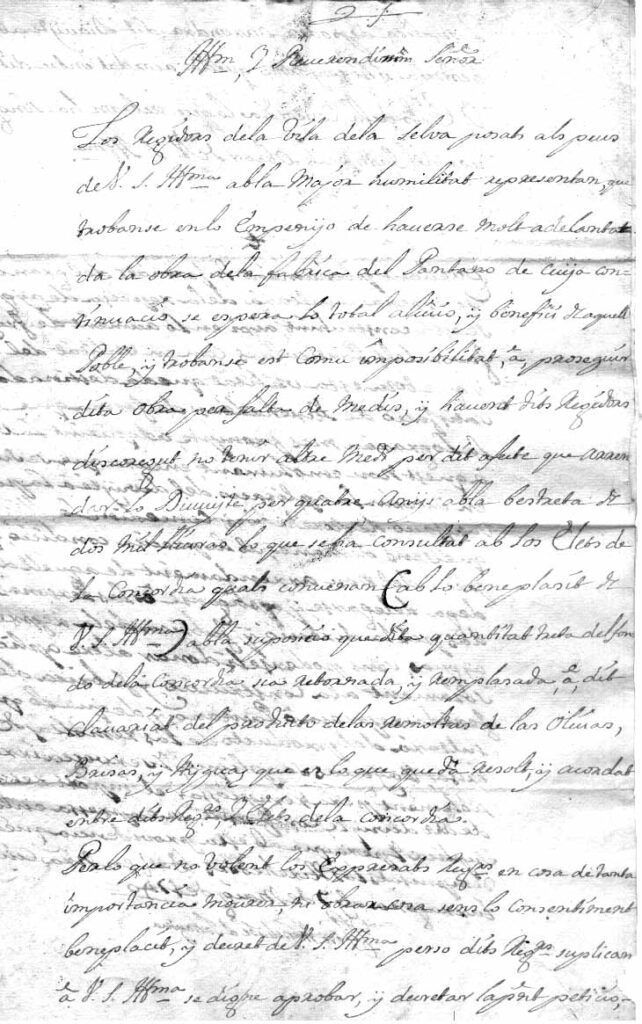 Illm. Y Reverendissm Señor
Los Regidors dela Vila dela Selva posats als peus
de V. S. Illma abla Major humilitat representan, que
trobanse en lo Empenyo de haverse molt adelantat
da la obra dela fabrica del Pantano de cuija con-
tinuació se espera lo total alivio, y benefici de aquell
Poble, y trobanse est Comu imposibilitat, â, proseguir
dita obra per falta de Medis, y havent dits Regidors
discoregut no tenir altre Medi per dit afecte que arren
dar lo per quatre anys abla bestreta de
dos mil lliuras lo que se ha consultat ab los Elets de
la Concordia quals convenan (ab lo beneplasit de
V. S. Illma) abla suposicio que dita quantitat treta del fon
do dela Concordia sia retornada, y remplasada, â, dit
clavariat del producto de las remoltas de las Olivas,
Brisas, y que es lo que queda resolt, y acordat
entre dits Regrs, Y Elets dela concordia.
Perlo que no volent los Expresats Regrs en cosa de tanta
importancia mourer, ni obrar cosa sens lo consentiment
beneplacit, y decret de V. S. Illma perso dits Regrs suplican
â V. S. Illma se digne aprobar, y decretar lapnt peticio,